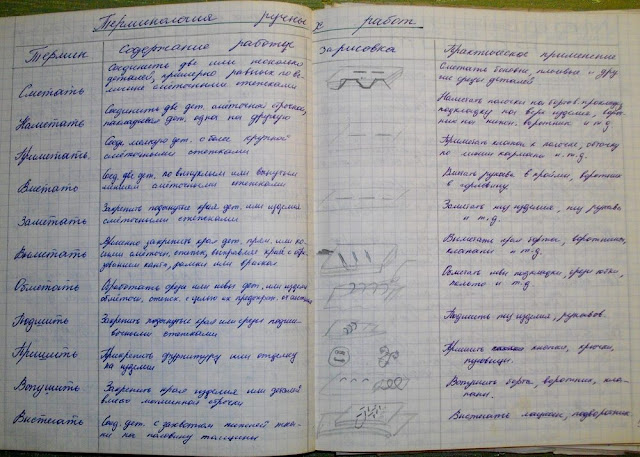 Терминология ручных работ
Термин Содержание работы Зарисовка Практическое применение
Сметать
Соединить две или несколько
деталей, примерно равных по ве-
личине сметочными стежками
Сметать боковые, плечевые и дру-
гие срезы деталей
Наметать
Соединить две дет. сметочной строчкой,
накладывая дет. одна на другую
Наметать полочки на борт. прокладку,
подкладку на верх изделия, верх.
на нижн. воротник и т.д.
Приметать
Соед. мелкую дет. с более крупной
сметочными стежками
Приметать клапан к полочке, обтачку
по линии кармана и т.д.
Вметать
Соед. две дет. по выпуклым или вогнутым
линиям сметочными стежками
Вметать рукава в проймы, воротник
в горловину
Заметать
Закрепить подогнутые края дет. или изделия
сметочными стежками
Заметать низ изделия, низ рукава
и т.д.
Выметать
Временно закрепить края дет. прям. или ко-
сыми сметочн. стежк., выправляя край с обра-
зованием канта, рамки или враскол
Выметать края борта, воротника,
клапана и т.д.
Обметать
Обработать срезы или швы дет. или изделия
обметочн. стежк. с целью их предохран. от осыпания
Обметать швы подкладки, срезы юбки,
пальто и т.д.
Подшить
Закрепить подогнутые края или срезы подши-
вочными стежками
Подшить низ изделия, рукавов.
Пришить
Прикрепить фурнитуру или отделку
на изделии
Пришить кнопки, крючки,
пуговицы.
Вспушить
Закрепить края изделия или деталей
вместо машинной строчки
Вспушить борта, воротник, кла-
паны.
Выстегать
Соед. дет. с захватом нижней тка-
ни на половину толщины
Выстегать лацкан, подворотник